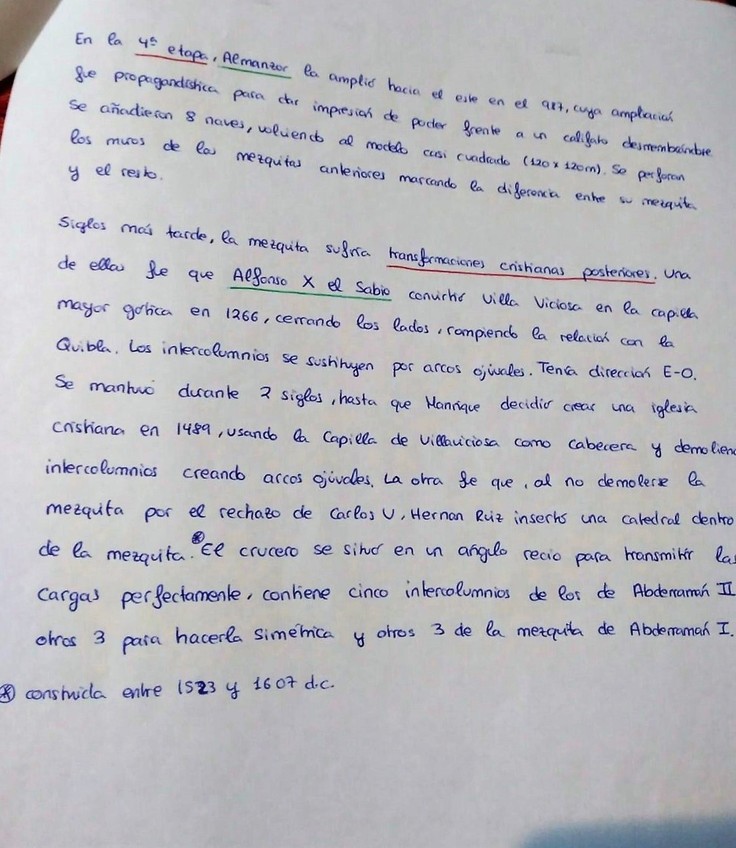 En la 4ª etapa, Almanzor la amplió hacia el este en el 987, cuya ampliación
fue propagandística para dar impresión de poder frente a un califato desmembrándose.
Se añadieron 8 naves, volviendo al modelo casi cuadrado (120 x 120m). Se perforan
los muros de las mezquitas anteriores marcando la diferencia entre su mezquita
y el resto.
Siglos más tarde, la mezquita sufría transformaciones cristianas posteriores. Una
de ellas fue que Alfonso X el Sabio convirtió Villa Viciosa en la capilla
mayor gótica en 1266, cerrando los lados, rompiendo la relación con la
Quibla. Los intercolumnios se sustituyen por arcos ojivales. Tenía dirección E-O.
Se mantuvo durante 2 siglos, hasta que Manrique decidió crear una iglesia
cristiana en 1489, usando la Capilla de Villaviciosa como cabecera y demolien
intercolumnios creando arcos ojivales. La otra fue que, al no demolerse la
mezquita por el rechazo de Carlos V, Hernan Ruiz insertó una catedral dentro
de la mezquita.⊛ El crucero se situó en un angulo recio para transmitir las
cargas perfectamente, contiene cinco intercolumnios de los de Abderramán II
otros 3 para hacerla simétrica y otros 3 de la mezquita de Abderramán I.
⊛ construida entre 1523 y 1607 d.c.